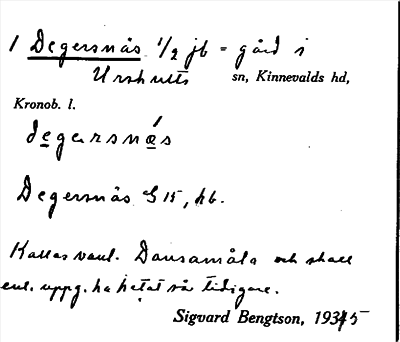 1 Degersnäs 1/2 jb = gård i
Urshults sn, Kinnevalds hd,
Kronob. l.
degersnæs
Degersnäs G 15, hb.
Kallas vanl. Dansamåla och skall
enl. uppg. ha hetat så tidigare.
Sigvard Bengtson, 1935